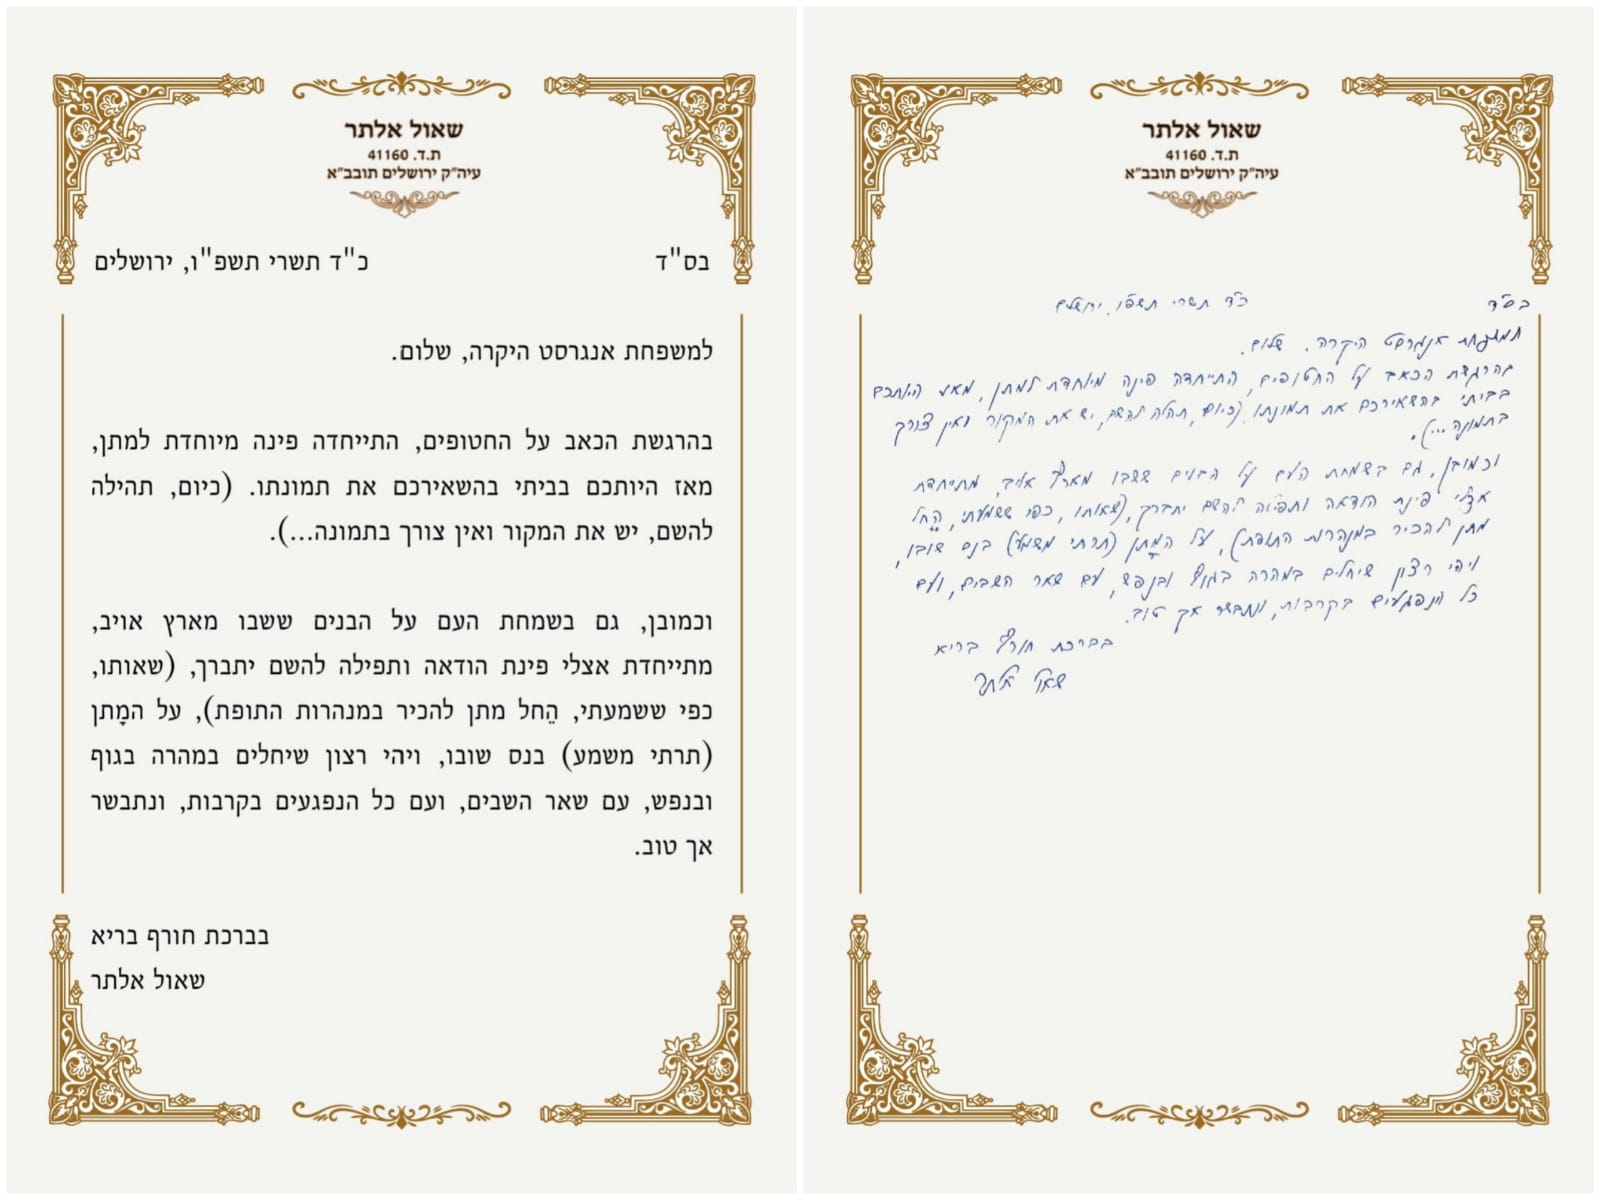 שאול אלתר
ת.ד. 41160
עיה"ק ירושלים תובב"א
בס"ד
כ"ד תשרי תשפ"ו, ירושלים
למשפחת אנגרסט היקרה, שלום.
בהרגשת הכאב על החטופים, התייחדה פינה מיוחדת למתן,
מאז היותכם בביתי בהשאירכם את תמונתו. (כיום, תהילה
להשם, יש את המקור ואין צורך בתמונה...).
וכמובן, גם בשמחת העם על הבנים ששבו מארץ אויב,
מתייחדת אצלי פינת הודאה ותפילה להשם יתברך, (שאותו,
כפי ששמעתי, הֵחל מתן להכיר במנהרות התופת), על המָתן
(תרתי משמע) בנס שובו, ויהי רצון שיחלים במהרה בגוף
ובנפש, עם שאר השבים, ועם כל הנפגעים בקרבות, ונתבשר
אך טוב.
בברכת חורף בריא
שאול אלתר
שאול אלתר
ת.ד. 41160
עיה"ק ירושלים תובב"א
בס"ד
כ"ד תשרי תשפ"ו, ירושלים
למשפחת אנגרסט היקרה, שלום.
בהרגשת הכאב על החטופים, התייחדה פינה מיוחדת למתן, מאז היותכם
בביתי בהשאירכם את תמונתו. (כיום, תהלה להשם, יש את המקור ואין צורך
בתמונה...).
וכמובן, גם בשמחת העם על הבנים ששבו מארץ אויב, מתייחדת
אצלי פינת הודאה ותפילה להשם יתברך, (שאותו, כפי ששמעתי, הֵחל
מתן להכיר במנהרות התופת), על המָתן (תרתי משמע) בנס שובו,
ויהי רצון שיחלים במהרה בגוף ובנפש, עם שאר השבים, ועם
כל הנפגעים בקרבות, ונתבשר אך טוב.
בברכת חורף בריא
שאול אלתר